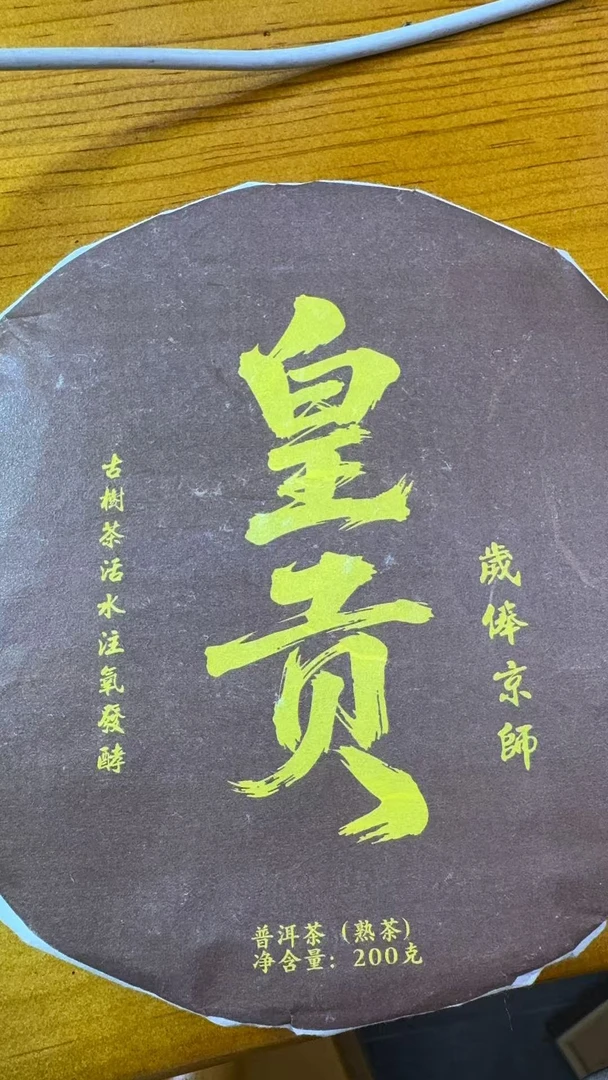 皇贡
歲俸京師
古樹茶活水注氧發酵
普洱茶（熟茶）
净含量：200克